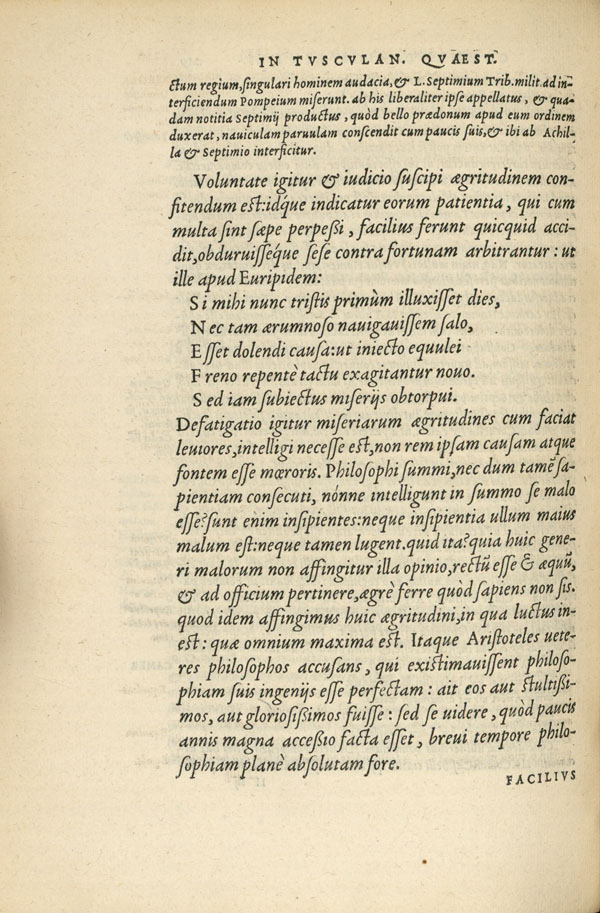 IN TVSCVLAN. QVAEST.
ctum regium, singulari hominem audacia, & L. Septimium Trib. milit. ad in-
terficiendum Pompeium miserunt. ab his liberaliter ipse appellatus, & qua-
dam notitia Septimij productus, quòd bello prædonum apud eum ordinem
duxerat, nauiculam paruulam conscendit cum paucis suis, & ibi ab Achil-
la & Septimio interficitur.
Voluntate igitur & iudicio suscipi ægritudinem con-
fitendum est: idq́ue indicatur eorum patientia, qui cum
multa sint sæpe perpeßi, facilius ferunt quicquid acci-
dit, obduruisseq́ue sese contra fortunam arbitrantur: ut
ille apud Euripidem:
Si mihi nunc tristis primùm illuxisset dies,
Nec tam ærumnoso nauigauissem salo,
Esset dolendi causa: ut iniecto equulei
Freno repentè tactu exagitantur nouo.
Sed iam subiectus miserijs obtorpui.
Defatigatio igitur miseriarum ægritudines cum faciat
leuiores, intelligi necesse est, non rem ipsam causam atque
fontem esse mœroris. Philosophi summi, nec dum tamē sa-
pientiam consecuti, nónne intelligunt in summo se malo
esse? sunt enim insipientes: neque insipientia ullum maius
malum est: neque tamen lugent. quid ita? quia huic gene-
ri malorum non affingitur illa opinio, rectū esse & æquū,
& ad officium pertinere, ægrè ferre quòd sapiens non sis.
quod idem affingimus huic ægritudini, in qua luctus in-
est: quæ omnium maxima est. Itaque Aristoteles uete-
res philosophos accusans, qui existimauissent philoso-
phiam suis ingenijs esse perfectam: ait eos aut stultißi-
mos, aut gloriosißimos fuisse: sed se uidere, quòd paucis
annis magna acceßio facta esset, breui tempore philo-
sophiam planè absolutam fore.
FACILIVS